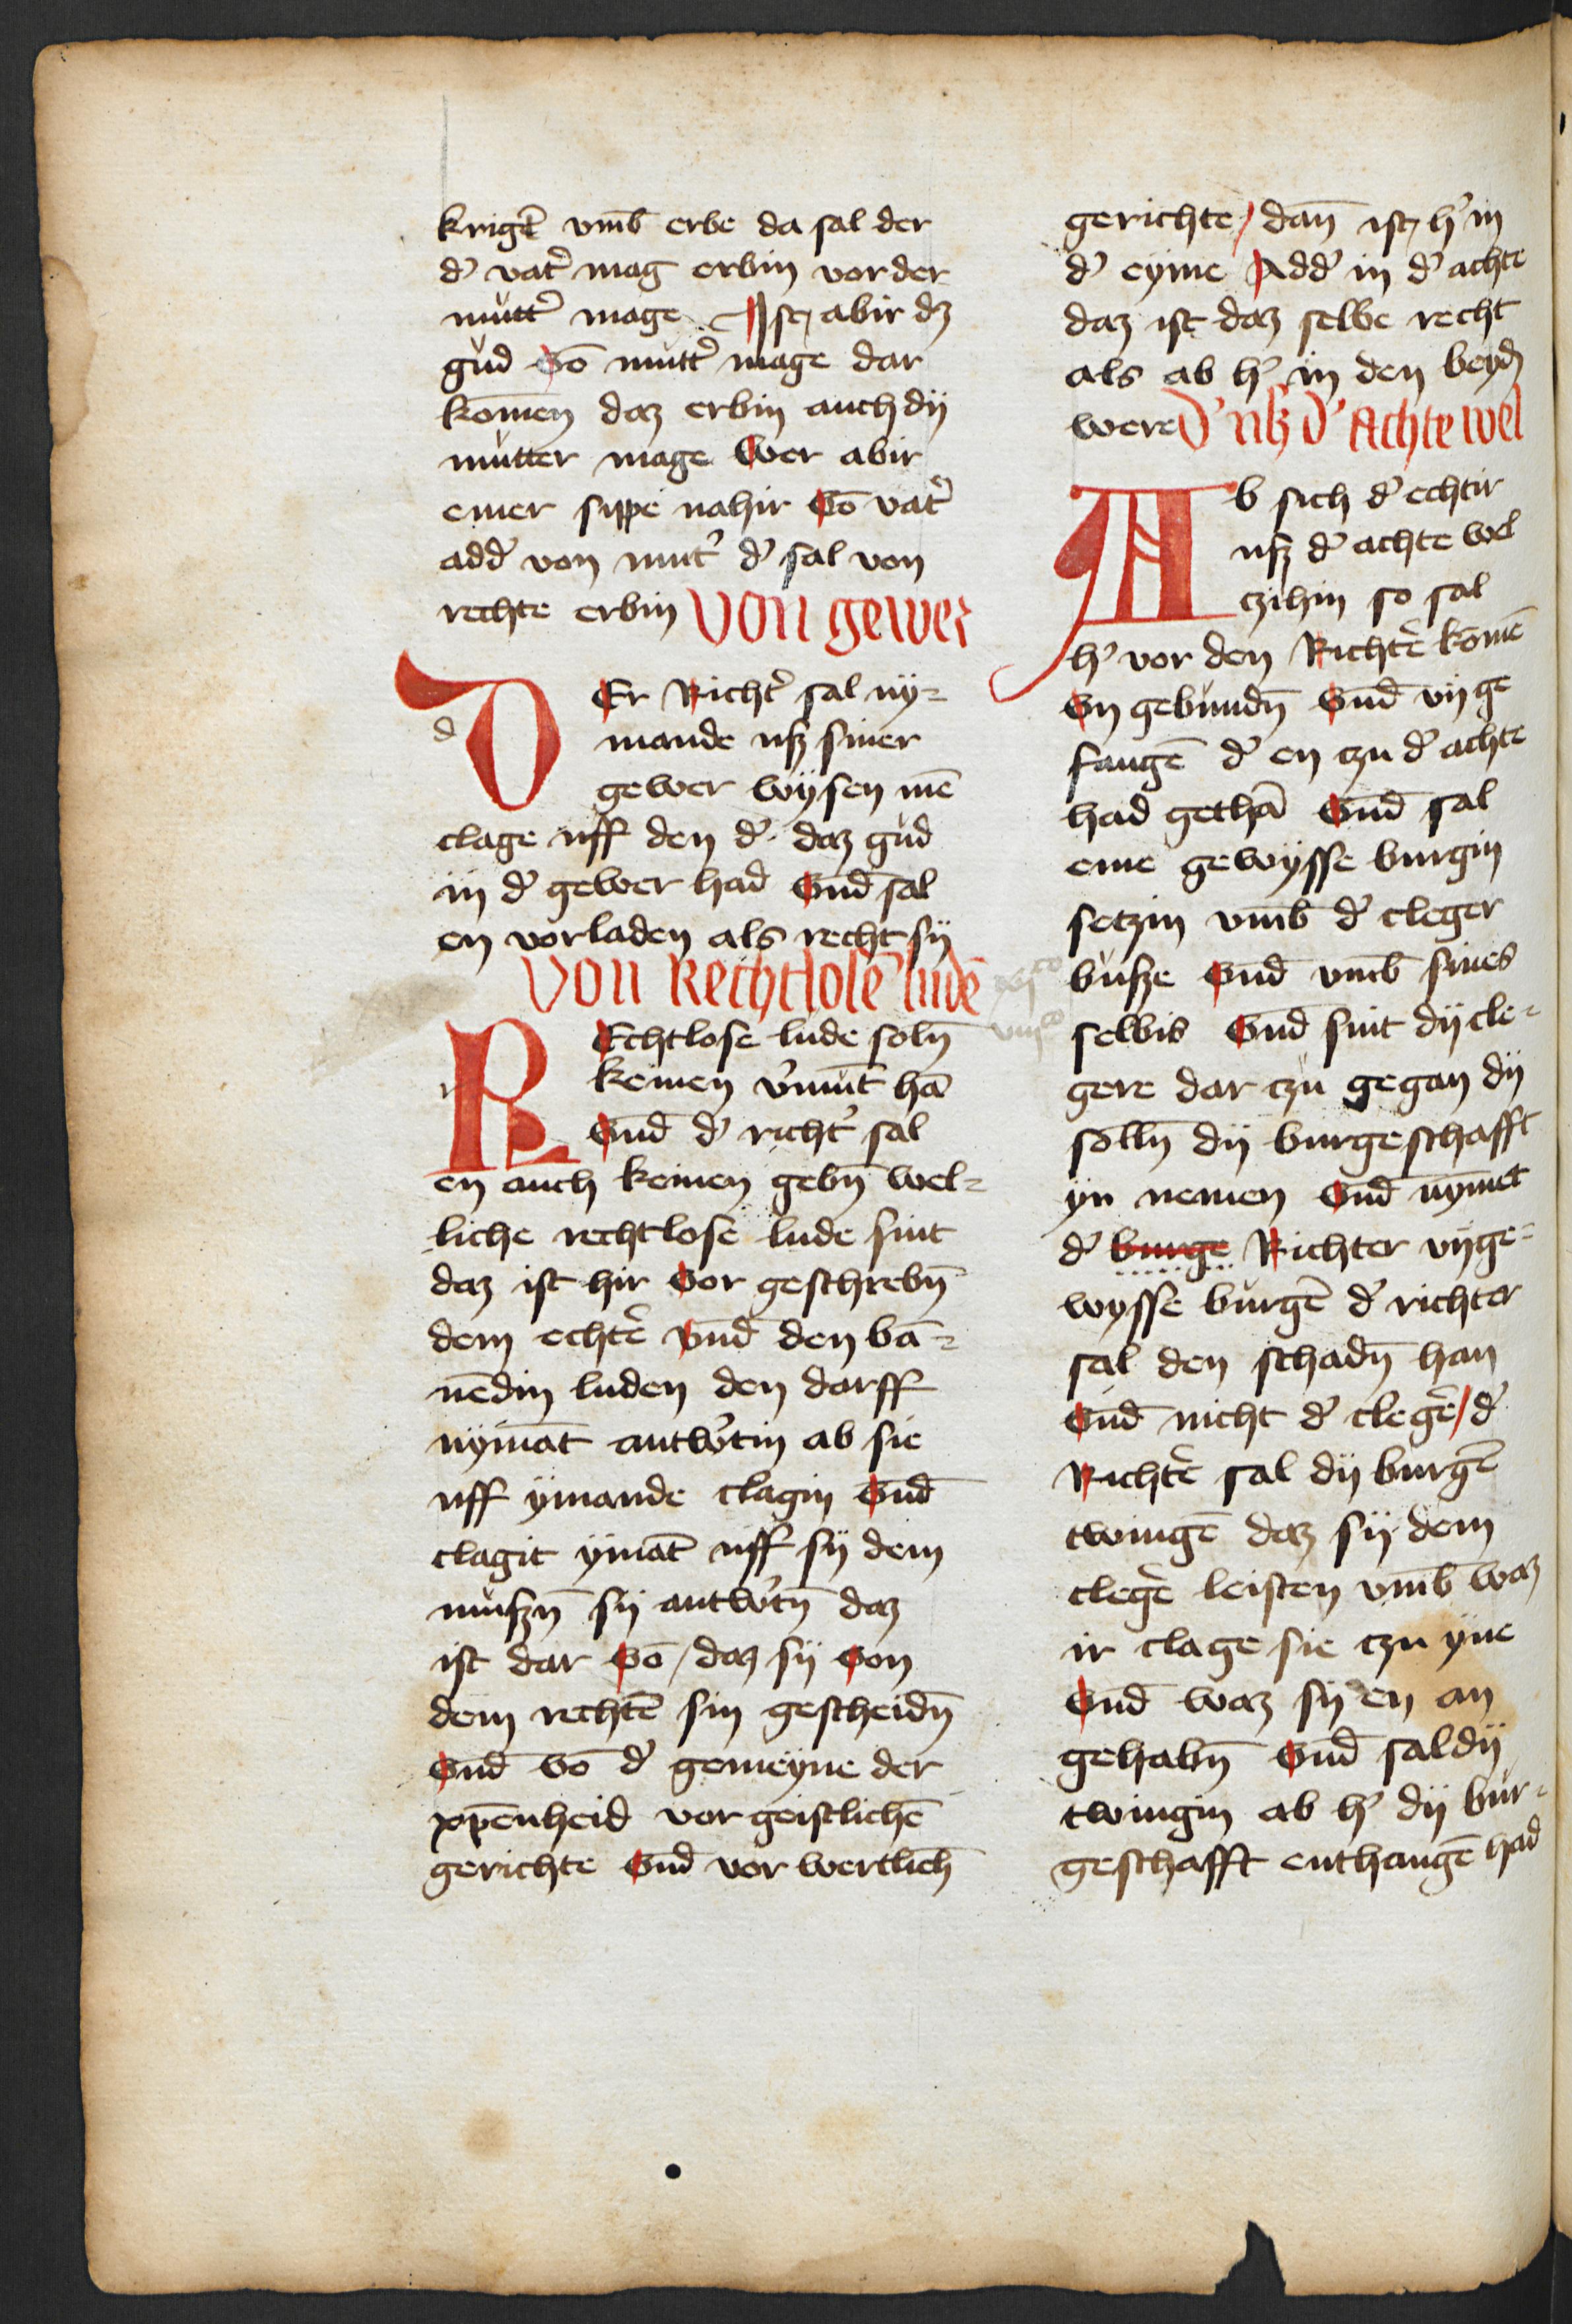 krigēt vm̄b erbe da sal der
d' vat' mag erbin vor der
mutt' mage Ist abir dz
gud vō mutt' mage dar
kom̄en daz erbin auch dij
mutter mage wer abir
einer sippe nahir vō vat'
add' von mut' d' sal von
rechte erbin von gewer
d
DEr Richt' sal nÿ=
mande usz siner
gewer wÿsen mē
clage uff den d' daz gud
in d' gewer had vnd̄ sal
en vorladen als recht sij
von Rechtlosē ludē
r
REchtlose lude soln̄
keinen v'munt hā
vnd̄ d' richt' sal
en auch keinen gebn̄ wel=
liche rechtlose lude sint
daz ist hir vor geschrebn̄
dem echtē' vnd̄ den bā=
nēdin luden den darff
nÿmāt antw'tin ab sie
uff ÿmande clagin vnd̄
clagit ÿmāt uff sij dem
muszn̄ sij antw'tn̄ daz
ist dar vō / daz sij von
dem rechtē sin gescheidn̄
vnd̄ vō d' gemeÿne der
xp̄enheid vor geistlichē
gerichte vnd̄ vor wertlich̄
gerichte / dan̄ ist h' in
d' eÿme Add' in d' achte
daz ist daz selbe recht
als ab h' in den beyd̄
were d' usz d' Achte wel
Ab sich d' echtir
usz d' achte wel
czihin so sal
h' vor den Richt'e komē
vn gebundn̄ vnd̄ vn ge
fangē d' en czu d' achte
had gethā vnd̄ sal
eine gewÿsse burgin
setzin vm̄b d' cleger
busze vnd̄ vm̄b sines
selbis vnd̄ sint dij cle=
gere dar czu gegan dij
solln̄ dij burgeschafft
ÿn nemen vnd̄ nÿmet
d' burge Richter vnge=
wysse burgē d' richter
sal den schadn̄ han
vnd̄ nicht d' clegē' / d'
Richtē' sal dij burgē
twingē daz sij dem
clegē' leisten vm̄b waz
ir clage sie czu ÿne
vnd̄ waz sij en an
gehabn̄ vnd̄ sal dij
twingin ab h' dij bur=
geschafft enthangē had